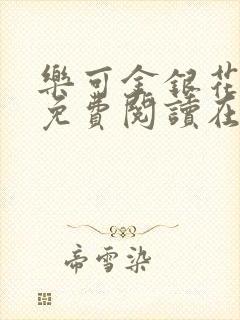 樂可金銀花
免費閱讀在
帝雪染